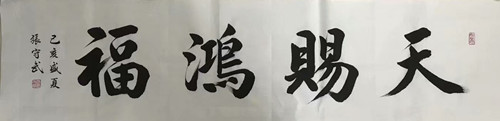 天賜鴻福
己亥盛夏
張守武